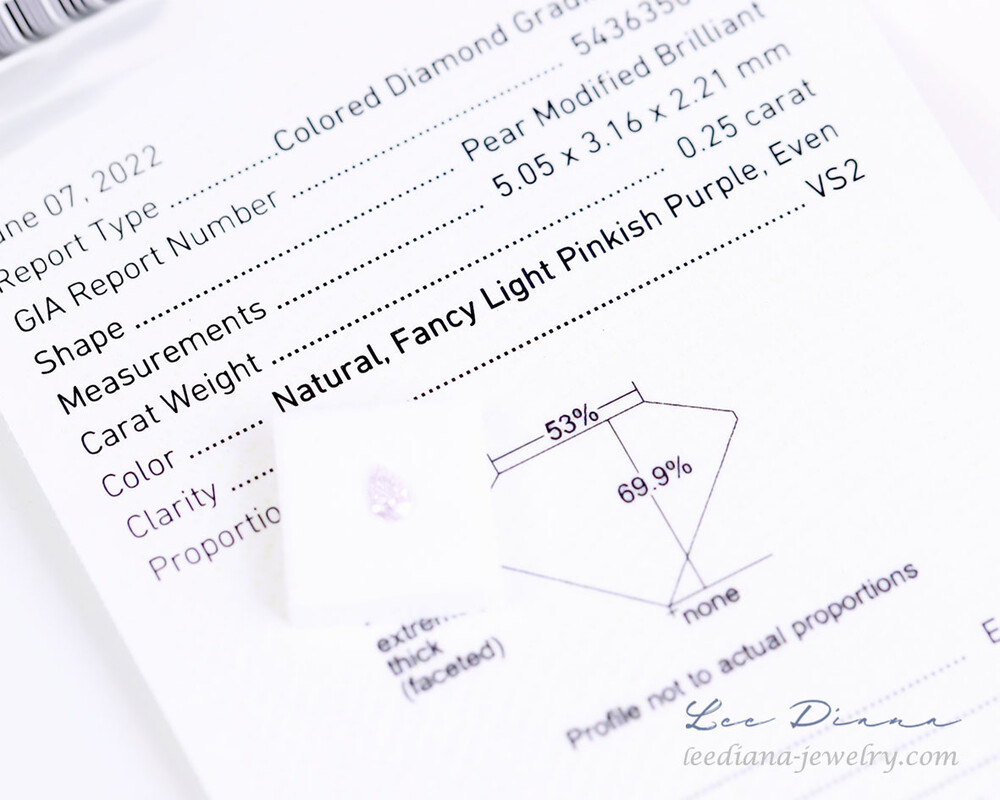 June 07, 2022
Report Type ............ Colored Diamond
GIA Report Number ............
Shape ............ Pear Modified Brilliant
Measurements ............ 5.05 x 3.16 x 2.21 mm
Carat Weight ............ 0.25 carat
Color ............ Natural, Fancy Light Pinkish Purple, Even
Clarity ............ VS2
53%
69.9%
none
thick
(faceted)
Profile not to actual proportions
Lee Diana
leediana-jewelry.com